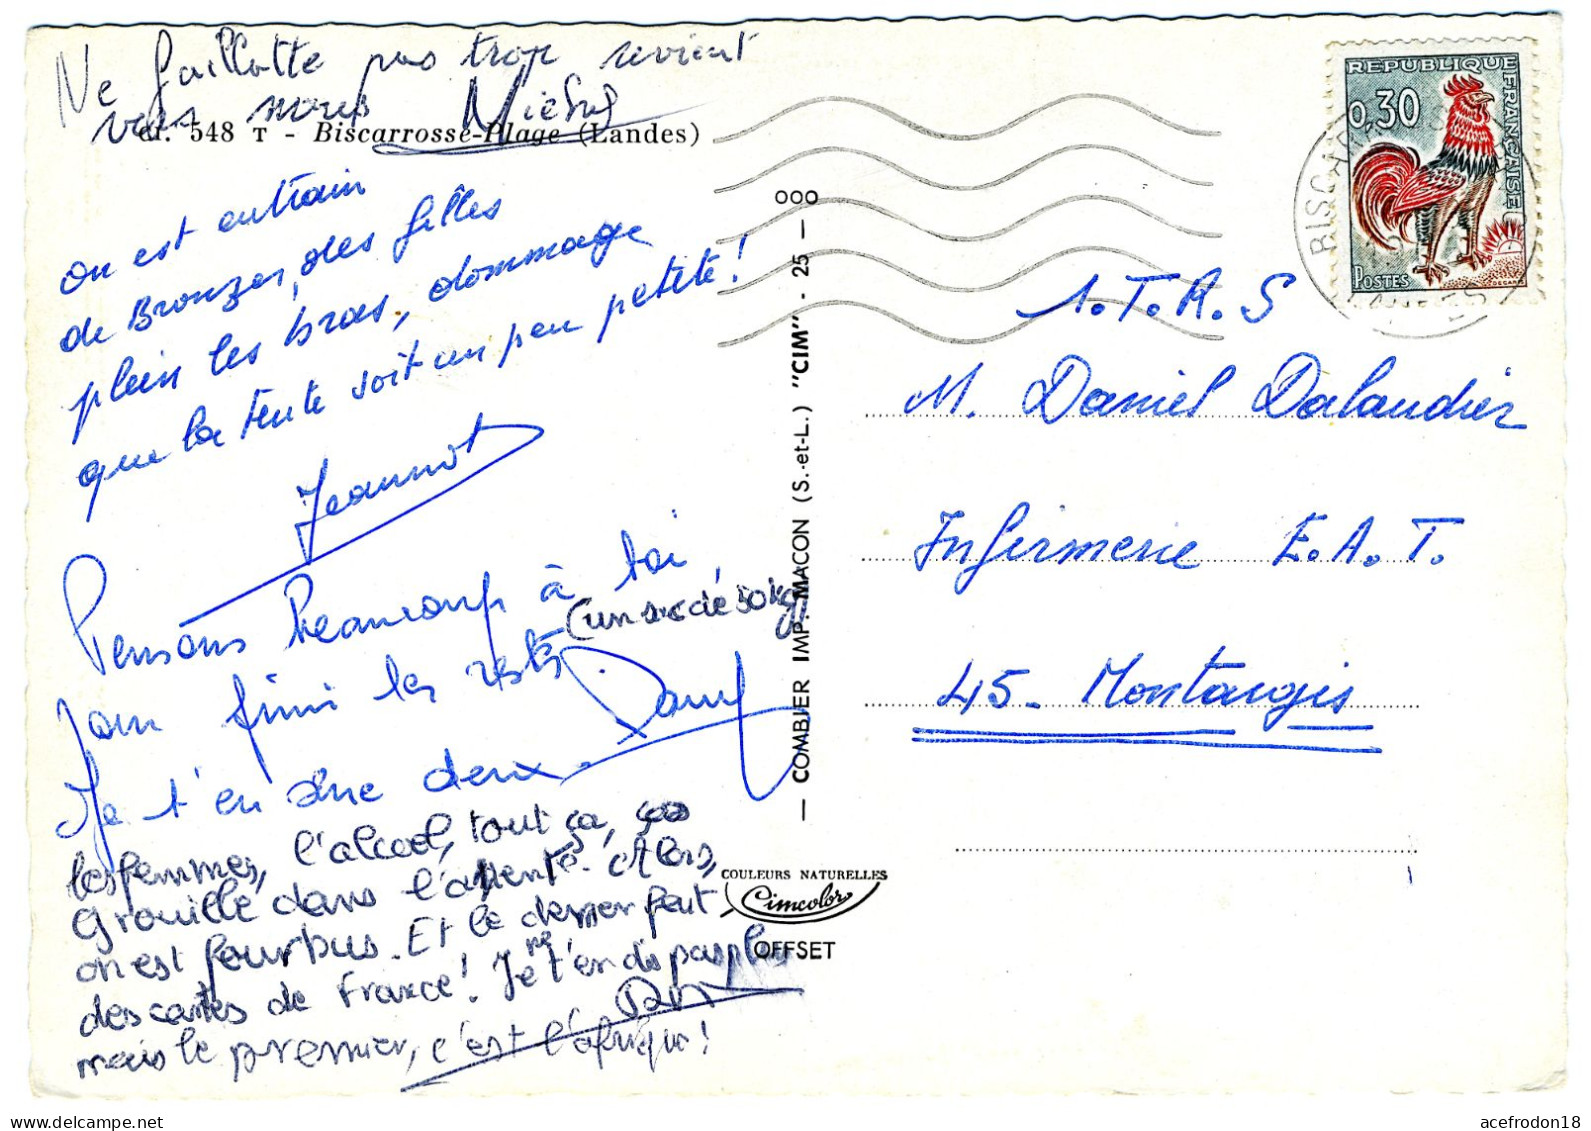 Ne faillotte pas trop revient
vers nous Michel
cl. 548 T - Biscarrosse-Plage (Landes)
on est entrain
de Bronzer, des filles
plein les bras, dommage
que la tente soit un peu petite!
Jeannot
Pensons beaucoup à toi,
(un sac de 50 kg)
finir les restes
Dany
Je t'en serre deux.
les femmes, l'alcool, tout ça, ça
grouille dans l'attente. Alors,
on est fourbus. Et le dernier peut
des cartes de France! Je ne t'en dis pas plus
mais le premier, c'est l'afrique!
— COMBIER IMP. MACON (S.-et-L.) "CIM" - 25 — OOO
COULEURS NATURELLES
Cimcolor
OFFSET
REPUBLIQUE FRANÇAISE
0,30
POSTES
DECARIS
BISCARROSSE
LANDES
1.T.R.S
M. Daniel Dalaudier
Infirmerie E.A.T.
45- Montargis
www.delcampe.net
acefrodon18